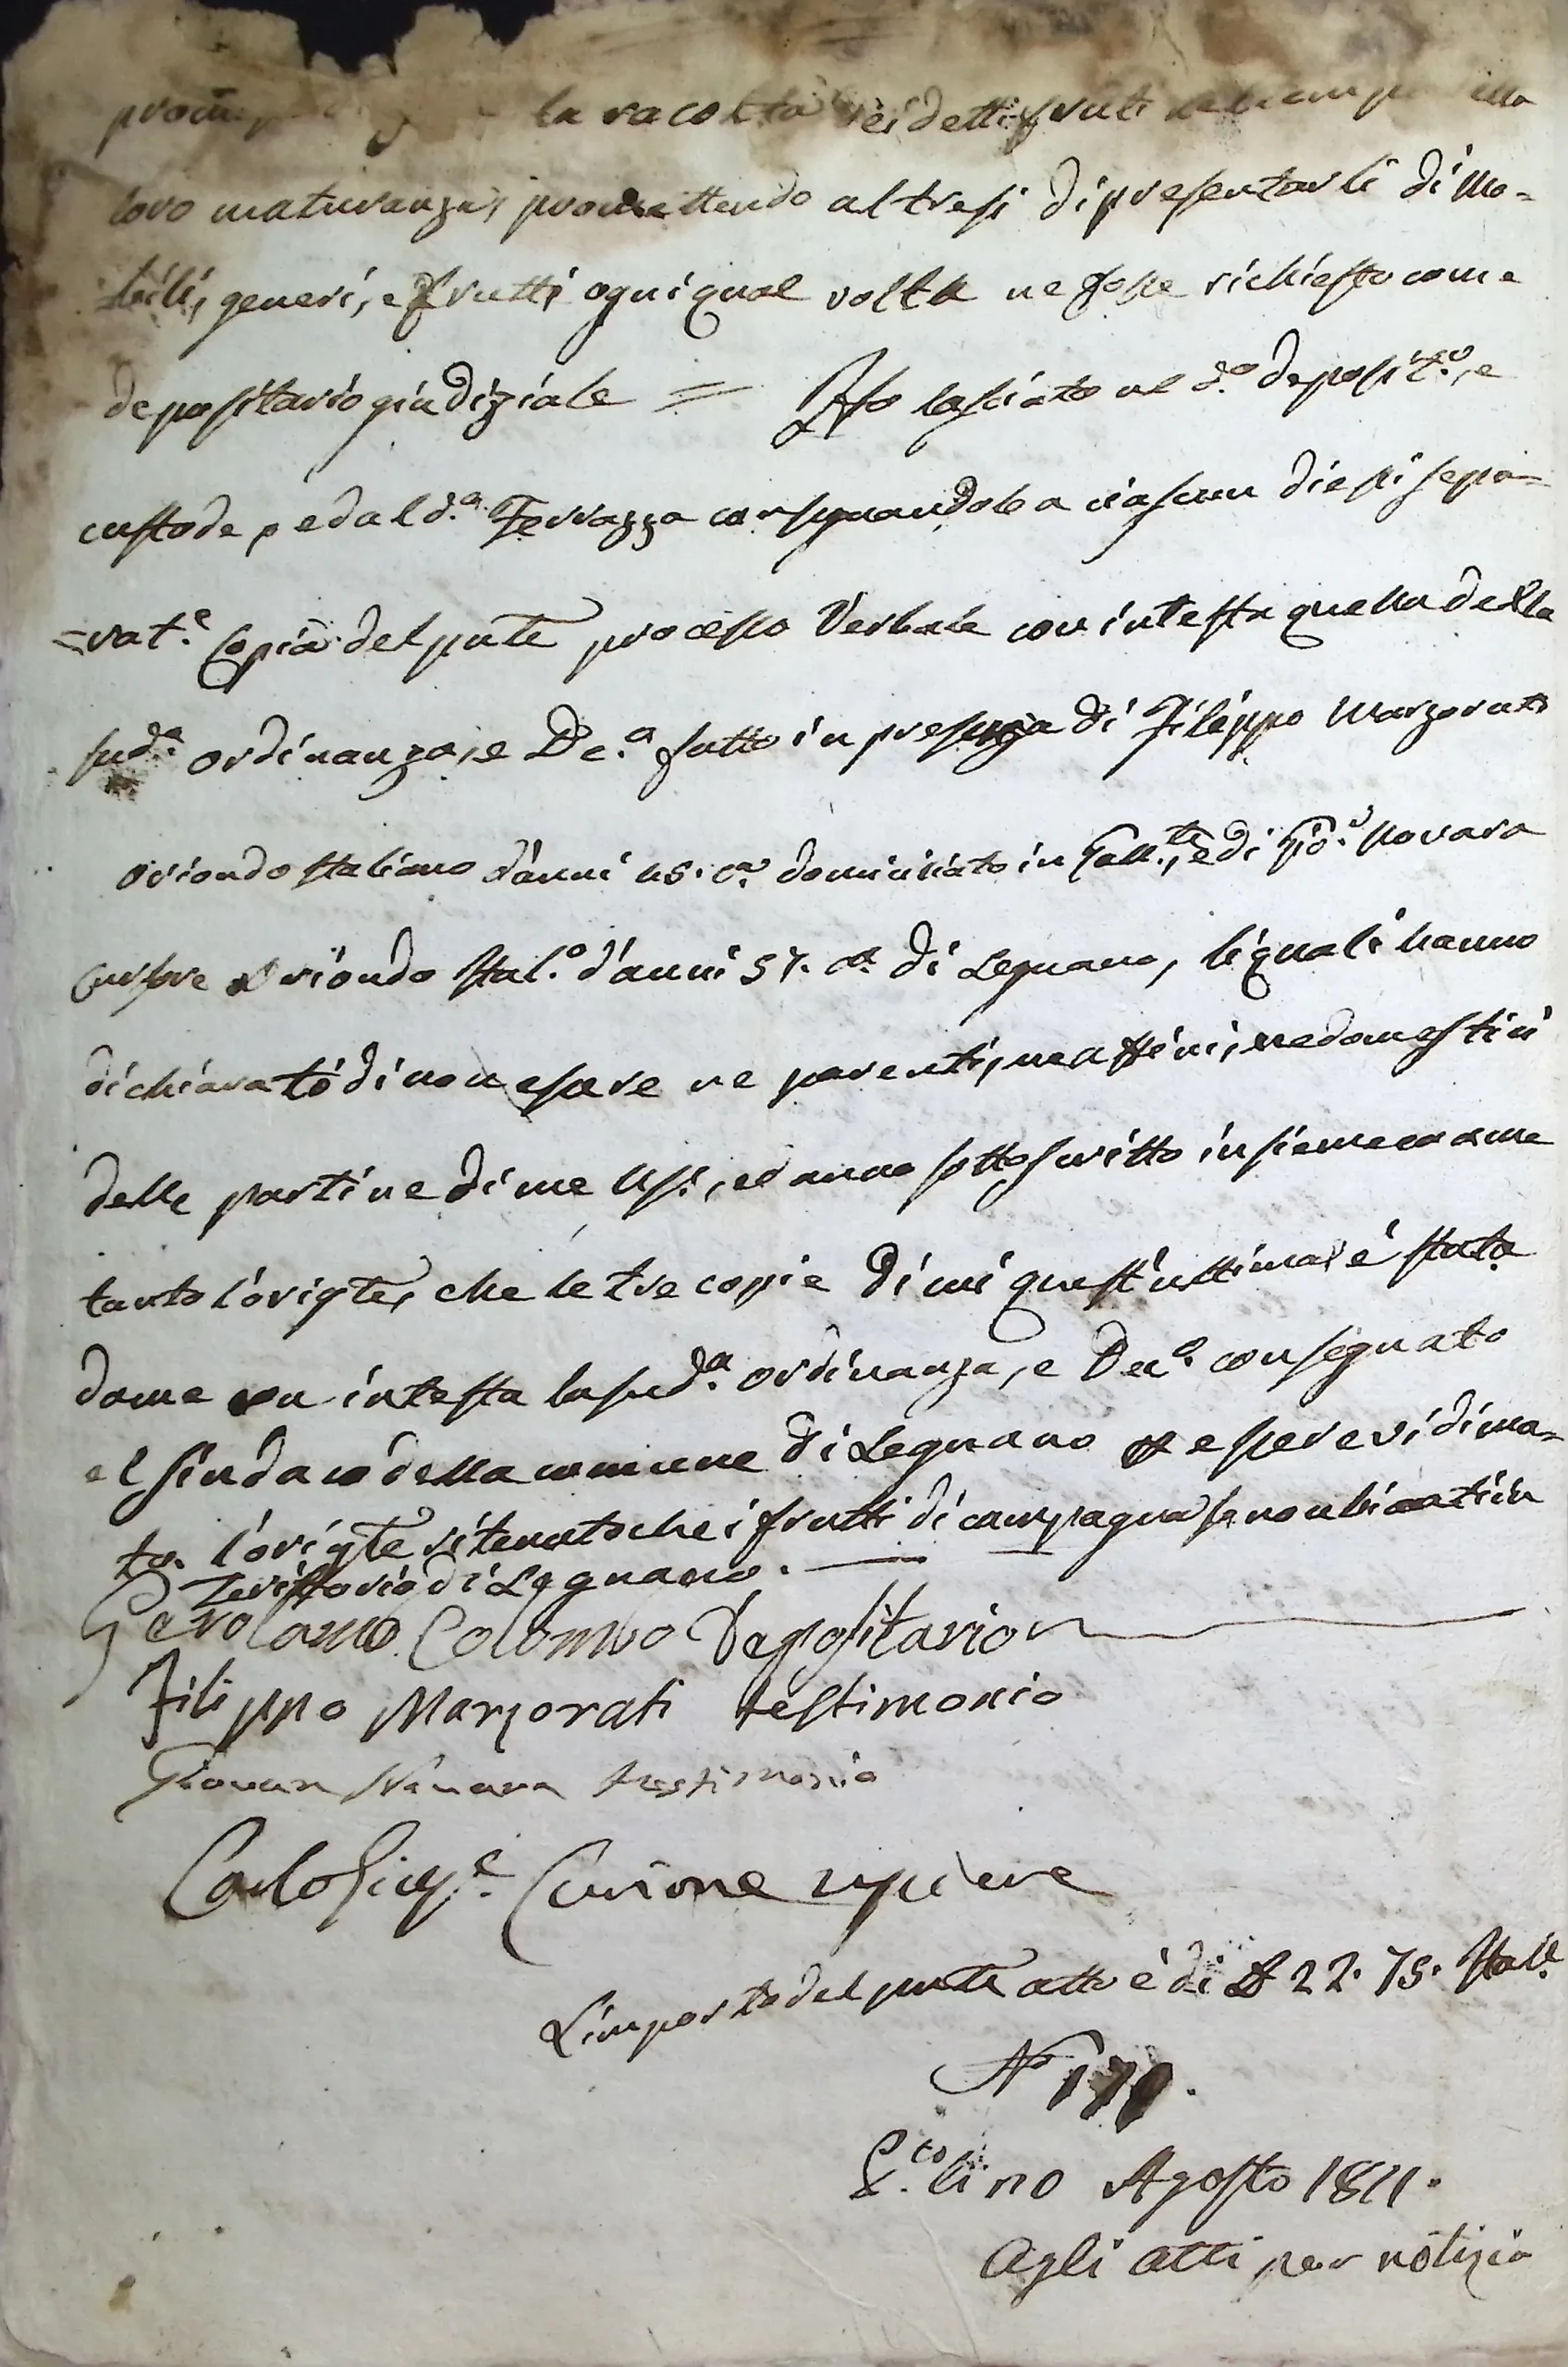 la racolta dei detti fruti
loro maturanza, promettendo altresi di presentarli di mo-
bili, generi, e frutti ogni qual volta ne fosse richiesto come
depositario giudiziale = Ho lasciato al d.o deposit.o, e
custode, ed al d.a Terrazza consegnandola a ciascun di essi sepa-
=rat.e Copia del pnte processo Verbale con in testa quella della
sud.a ordinanza, e De.a fatto in presenza di Filippo Marzorati
oriondo Italiano d'anni 45. domiciliato in Gall.te, e di Gio. Novara
Cursore oriondo Ital.o d'anni 57. di Legnano, li quali hanno
dichiarato di non essere ne parenti, ne affini, ne domestici
delle parti ne di me Us.e, ed anno sottoscritto insieme a me
tanto l'origle, che le tre copie di cui quest'ultima è stata
da me con in testa la sud.a ordinanza, e consegnato
al Sindaco della commune di Legnano essere vidima-
to l'origle ritenuto che i frutti di campagna sono ubicati in
Teritorio di Legnano.
Gerolamo Colombo Depositario
Filippo Marzorati testimonio
Giovan Navara testimonio
Carlo Gius.e usciere
L'importo del pnte atto è di 22. 75. Ital.e
N 170.
li no Agosto 1811.
Agli atti per notizia